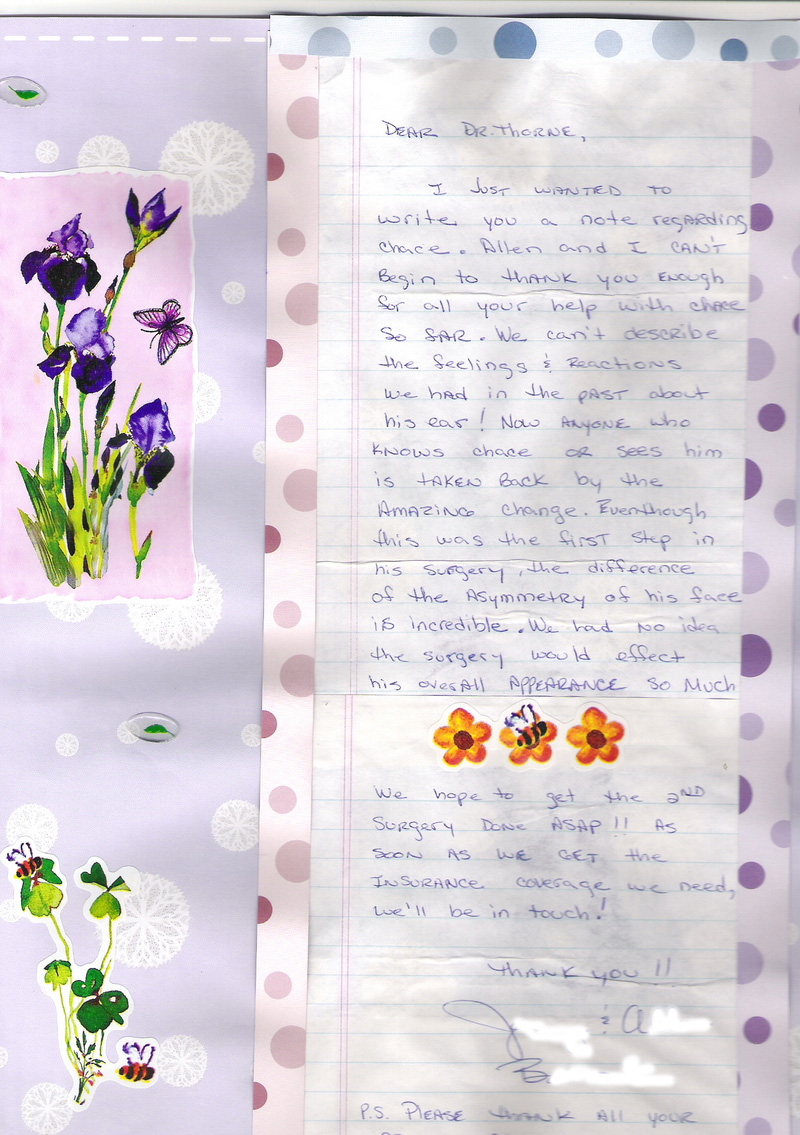 DEAR DR. THORNE,
I JUST WANTED TO
write you a note regARDING
chace. Allen and I CAN'T
Begin to thANK you ENough
for all your help with chace
so fAR. We can't describe
the feelings & REActions
we hAD in the pAST about
his ear! NOW ANYONE who
KNOWS chace OR sees him
is tAKEN BACK by the
AMAZING change. Eventhough
this was the first step in
his surgery, the difference
of the ASYMMETRY of his face
is incredible. We had NO idea
the surgery would effect
his overAll APPEARANCE so Much
We hope to get the 2ND
SURGERY DONE ASAP!! AS
SOON AS WE GET the
INSURANCE coverage we need,
we'll be in touch!
THANK you!!
J & A
B
P.S. PLEASE thANK All YOUR